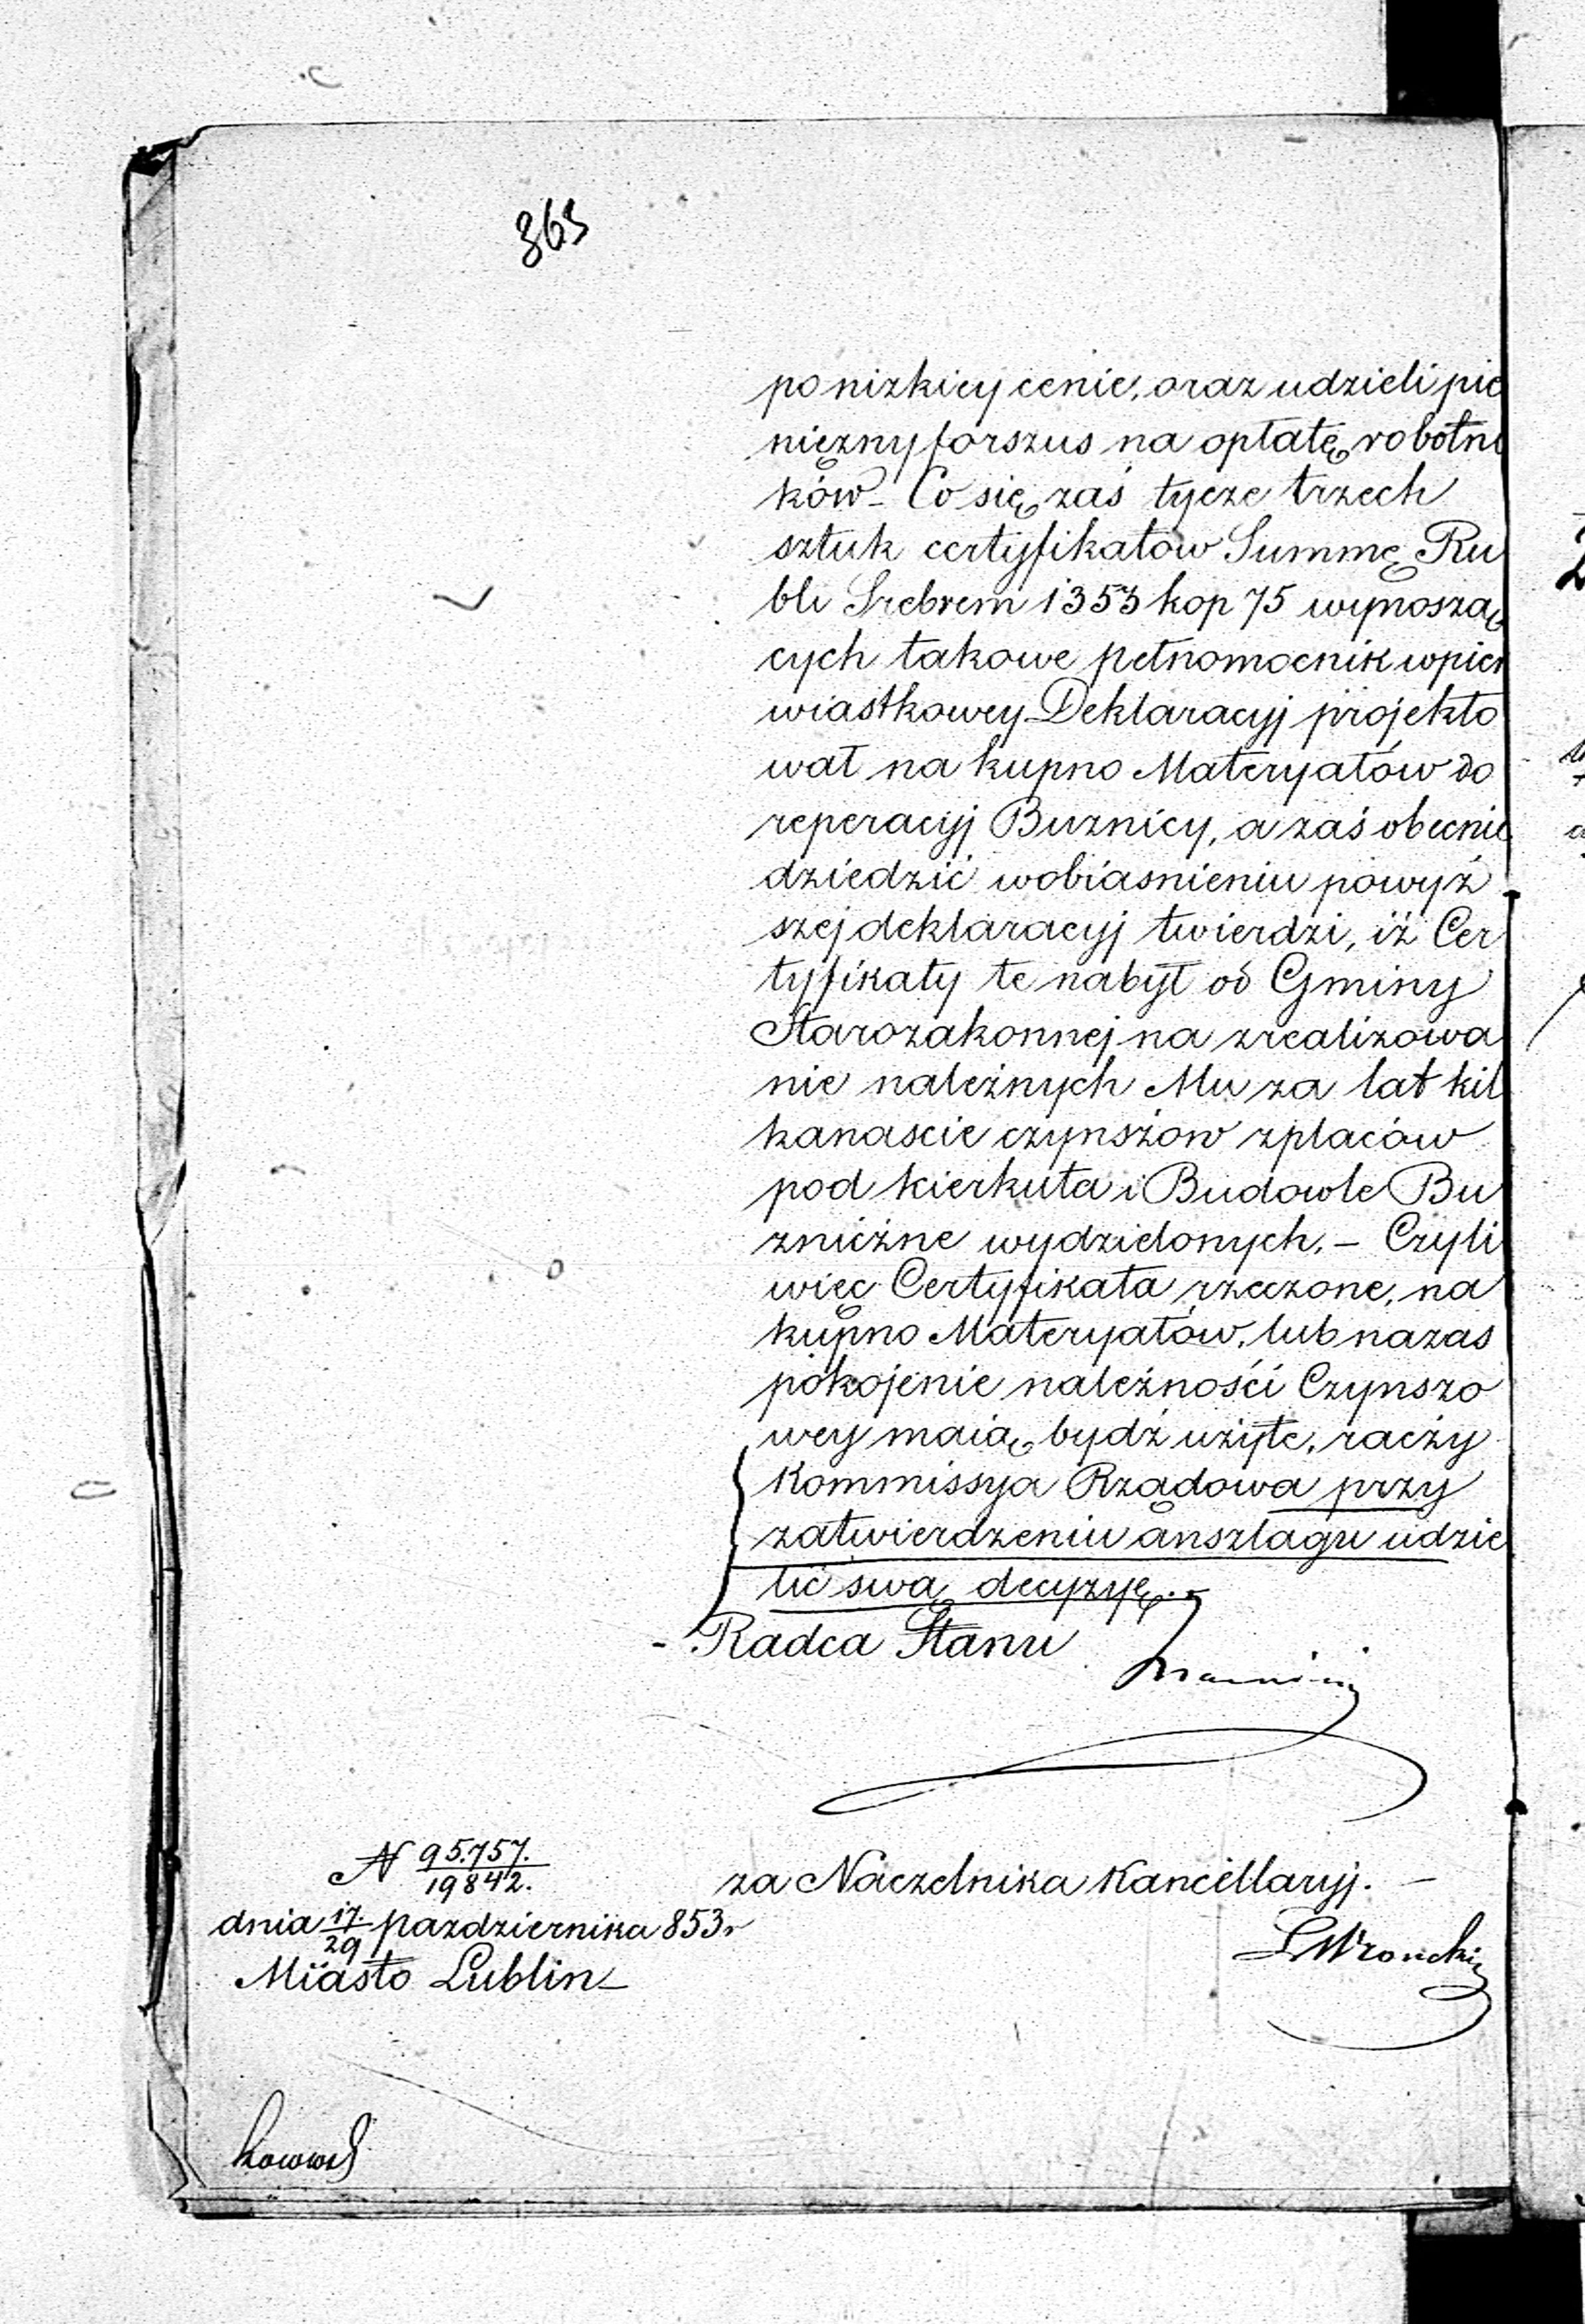 365
po nizkiey cenie, oraz udzieli pie
niężny forszus na opłatę robotni
ków – Co się zaś tycze trzech
sztuk certyfikatow Summę Ru
bli Srebrem 1353 kop 75 wynoszą
cych takowe pełnomocnik w pier
wiastkowey Deklaracyj projekto
wał na kupno Materyałów do
reperacyj Buznicy, a zaś obecnie
dziedzić w obiasnieniu powyż
szej deklaracyj twierdzi, iż Cer
tyfikaty te nabył od Gminy
Starozakonnej na zrealizowa
nie należnych Mu za lat kil
kanascie czynszow z placów
pod kierkuta i Budowle Bu
zniczne wydzielonych. – Czyli
więc Certyfikata rzeczone, na
kupno Materyałów, lub na zas
pokojenie należności Czynszo
wey maią bydź użyte, raczy
Kommissya Rządowa przy
zatwierdzeniu anszlagu udzie
lić swą decyzyę. –
Radca Stanu
N 95.757./19842.
za Naczelnika Kancellaryj. –
dnia 17/29 pazdziernika 853 r
LWroncki
Miasto Lublin –